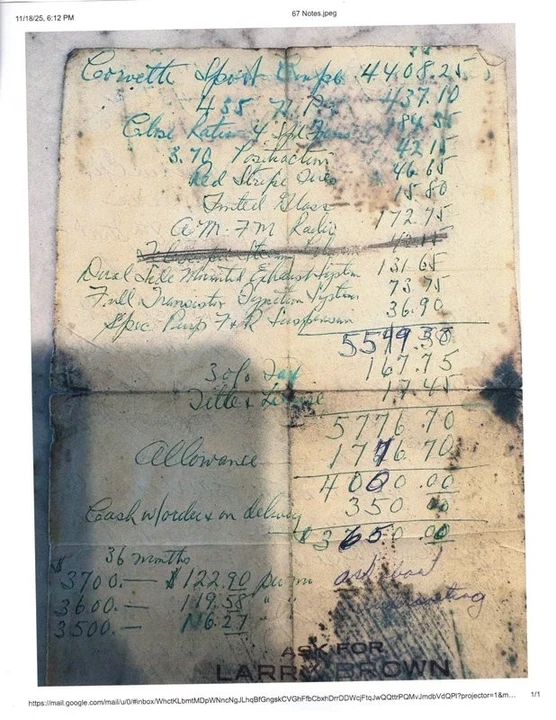 11/18/25, 6:12 PM
67 Notes.jpeg
Corvette Sport Coupe 4408.25
435 H.P. 437.10
Close Ratio 4 Spd Trans 184.35
3.70 Positraction 42.15
Red Stripe Tires 46.65
Tinted Glass 15.80
A.M.-F.M. Radio 172.75
Dual Side Mounted Exhaust System 131.65
Full Transistor Ignition System 73.75
Spec Purp F & R Suspension 36.90
3% Tax 167.75
Title & License 17.45
5776.70
Allowance 1776.70
4000.00
Cash w/order & on delivery 350.00
$ 3650.00
36 months
$ 3700.— $122.90 per m
3600.— 119.58 " "
3500.— 116.27
ASK FOR
LARRY BROWN
1/1